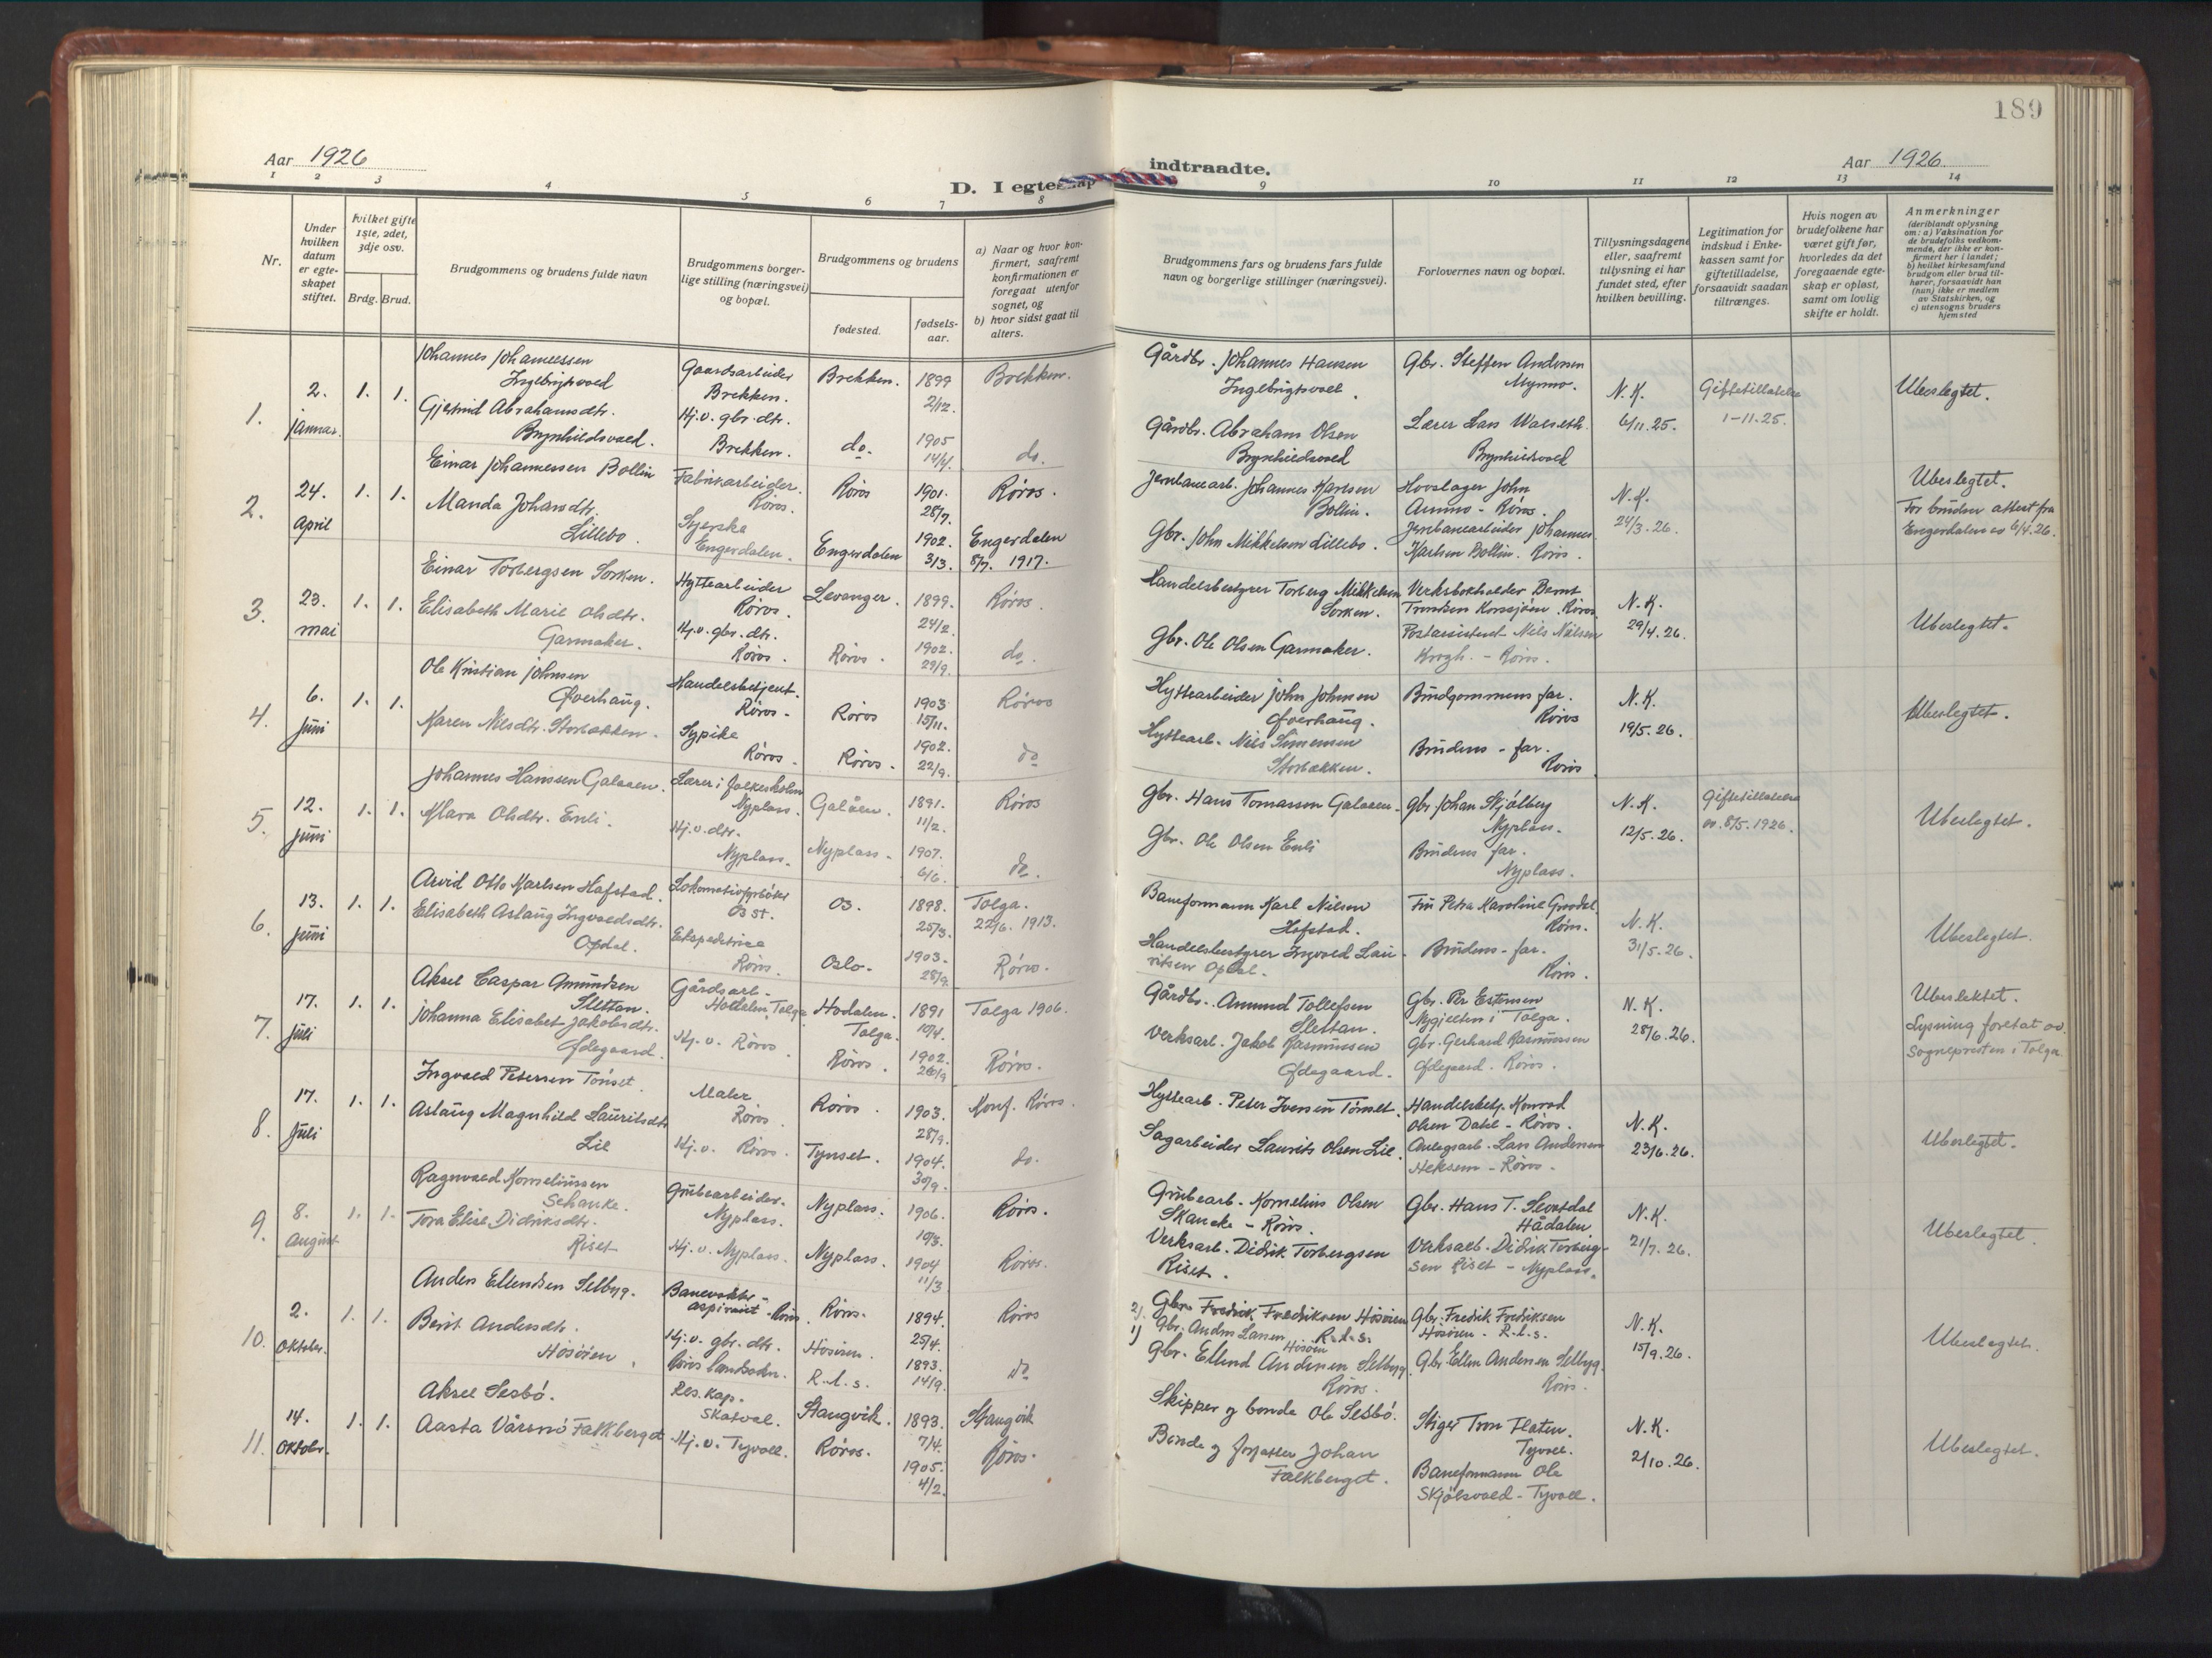 189
Aar 1926
D. I egteskap
indtraadte.
Aar 1926.
1 2 3 4 5 6 7 8 9 10 11 12 13 14
Nr.
Under hvilken datum er egteskapet stiftet.
hvilket gifte 1ste, 2det, 3dje osv.
Brdg. Brud.
Brudgommens og brudens fulde navn
Brudgommens borgerlige stilling (næringsvei) og bopæl.
Brudgommens og brudens
fødested.
fødselsaar.
a) Naar og hvor konfirmert, saafremt konfirmationen er foregaat utenfor sognet, og
b) hvor sidst gaat til alters.
Brudgommens fars og brudens fars fulde navn og borgerlige stillinger (næringsvei).
Forlovernes navn og bopæl.
Tillysningsdagene eller, saafremt tillysning ei har fundet sted, efter hvilken bevilling.
Legitimation for indskud i Enkekassen samt for giftetilladelse, forsaavidt saadan tiltrænges.
Hvis nogen av brudefolkene har været gift før, hvorledes da det foregaaende egteskap er opløst, samt om lovlig skifte er holdt.
Anmerkninger
(deriblandt oplysning om: a) Vaksination for de brudefolks vedkommende, der ikke er konfirmert her i landet;
b) hvilket kirkesamfund brudgom eller brud tilhører, forsaavidt han (hun) ikke er medlem av Statskirken, og
c) utensogns bruders hjemsted
1. 2. januar. 1. 1.
Johannes Johannessen Ingebrigtsvold
Gjertrud Abrahamsdtr. Brynhildsvold.
Gaardsarbeider Brekken.
Hj.v. gbr. dtr. Brekken.
Brekken. do.
1899 2/12.
1905 14/4.
Brekken. do.
Gårdbr. Johannes Hansen Ingebrigtsvold.
Gårdbr. Abraham Olsen Brynhildsvold
Gbr. Steffen Andersen Mynmo.
Lærer Lars Brynhildsvold
N.K. 6/11.25.
Giftetillatelse 1-11.25.
Ubeslegtet.
2. 24. April 1. 1.
Einar Johannessen Bollin
Manda Johansdtr. Lillebo.
Fabrikarbeider. Røros.
Syerske Engerdalen.
Røros
Engerdalen
1901. 28/7.
1902. 3/3.
Røros.
Engerdalen 8/7. 1917.
Jernbanearb. Johannes Karlsen Bollin.
Gbr. John Mikkelsen Lillebo.
Hovslager John Ammo - Røros.
Jernbanearbeider Johannes Karlsen Bollin. Røros.
N.K. 24/3.26.
Ubeslegtet.
For bruden attest fra Engerdalen av 6/4.26.
3. 23. mai 1. 1.
Einar Torbergsen Sorken.
Elisabeth Marie Olsdtr. Garmaker.
Hyttearbeider Røros.
Hj.v. gbr. dtr. Røros.
Levanger.
Røros.
1899. 24/2.
1902. 29/9.
Røros.
do.
Handelsbestyrer Torberg Mikkelsen Sorken.
Gbr. Ole Olsen Garmaker.
Verksbokholder Bernt Trondsen Korssjøen. Røros
Postassistent Niels Nielsen Krogh. - Røros.
N.K. 29/4.26.
Ubeslegtet.
4. 6. juni 1. 1.
Ole Kristian Johnsen Øverhaug.
Karen Nilsdtr. Storbækken.
Handelsbetjent. Røros.
Sypike Røros.
Røros
Røros.
1903 15/11.
1902. 22/9.
Røros
do
Hyttearbeider John Johnsen Øverhaug.
Hyttearb. Nils Simensen Storbækken.
Brudgommens far. Røros
Brudens - far. Røros
N.K. 19/5.26.
Ubeslegtet.
5. 12. juni 1. 1.
Johannes Hanssen Galaaen.
Klara Olsdtr. Enli.
Lærer i folkeskolen Nyplass.
Hj.v. dtr. Nyplass.
Galåen.
Nyplass.
1891. 11/2.
1907. 6/6.
Røros
do.
Gbr. Hans Tomassen Galaaen.
Gbr. Ole Olsen Enli
Gbr Johan Skjølberg Nyplass.
Brudens far. Nyplass.
N.K. 12/5.26.
Giftetillatelse av. 8/5.1926.
Ubeslegtet.
6. 13. juni 1. 1.
Arvid Otto Karlsen Hafstad.
Elisabeth Aslaug Ingvaldsdtr. Opdal.
Lokomotivfyrbøter Os st.
Ekspeditrice Røros.
Os.
Oslo.
1898. 25/3.
1903. 28/9.
Tolga. 22/6. 1913.
Røros.
Baneformann Karl Nilsen Hofstad.
Handelsbestyrer Ingvald Lauritsen Opdal.
Fru Petra Karoline Røros.
Brudens - far. Røros.
N.K. 31/5.26.
Ubeslegtet.
7. 17. juli 1. 1.
Aksel Caspar Amundsen Slettan.
Johanna Elisabet Jakobsdtr. Ødegaard.
Gårdsarb. Hodalen, Tolga
Hj.v. Røros.
Hodalen. Tolga.
Røros.
1891 10/4.
1902. 26/9
Tolga 1906.
Røros.
Gårdbr. Amund Tollefsen Slettan.
Verksarb. Jakob Rasmussen Ødegaard.
Gbr. Per Estensen Nygjelten i Tolga.
Gbr. Gerhard Rasmussen Ødegaard. Røros.
N.K. 28/6.26.
Ubeslektet.
Lysning foretat av. Sognepresten i Tolga.
8. 17. juli 1. 1.
Ingvald Petersen Tønset.
Aslaug Magnhild Lauritsdtr Lie
Maler Røros.
Hj.v. Røros.
Røros.
Tynset.
1903. 28/9.
1904. 30/9.
Konf. Røros.
do.
Hyttearb. Peter Iversen Tønset.
Sagarbeider Laurits Olsen Lie.
Handelsbetj. Konrad Olsen Dahl - Røros.
Anlegsarb. Lars Andersen Heksem - Røros.
N.K. 23/6.26.
Ubeslegtet.
9. 8. august 1. 1.
Ragnvald Korneliussen Schanke.
Tora Elise Didriksdtr. Riset
Grubearbeider. Nyplass.
Hj.v. Nyplass.
Nyplass.
Nyplass.
1906. 10/3.
1904 11/3
Røros.
Røros.
Grubearb. Kornelius Olsen Skancke - Røros.
Verksarb. Didrik Torbergsen Riset.
Gbr. Hans T. Hådalen
Verksarb. Didrik Torbergsen Riset - Nyplass.
N.K. 21/7.26.
Ubeslegtet.
10. 2. Oktober. 1. 1.
Anders Ellendsen Selbyg.
Berit Andersdtr. Hosøien.
Banevokter-aspirant - Røros.
Hj.v. gbr. dtr. Røros landsokn.
Røros.
Hosøien. R.l.s.
1894. 25/4.
1893. 14/9.
Røros
do
2). Gbr. Fredrik Fredriksen Hosøien R.l.s.
Gbr. Anders Larsen Hosøien
1) Gbr. Ellend Andersen Selbyg Røros.
Gbr. Fredrik Fredriksen Hosøien - R.l.s.
Gbr. Ellen Andersen Selbyg. Røros.
N.K. 15/9.26.
Ubeslegtet.
11. 14. Oktobr. 1. 1.
Aksel Sesbø.
Aasta Vårsno Falkberget
Res. kap. Skatval.
Hj.v. Tyvoll.
Stangvik.
Røros.
1893. 7/4.
1905. 4/2.
Stangvik
Røros.
Skipper og bonde Ole Sesbø.
Bonde og forfatter Johan Falkberget.
Stiger Tron Flaten. Tyvoll.
Baneformann Ole Skjølsvold - Tyvoll.
N.K. 2/10.26.
Ubeslegtet.